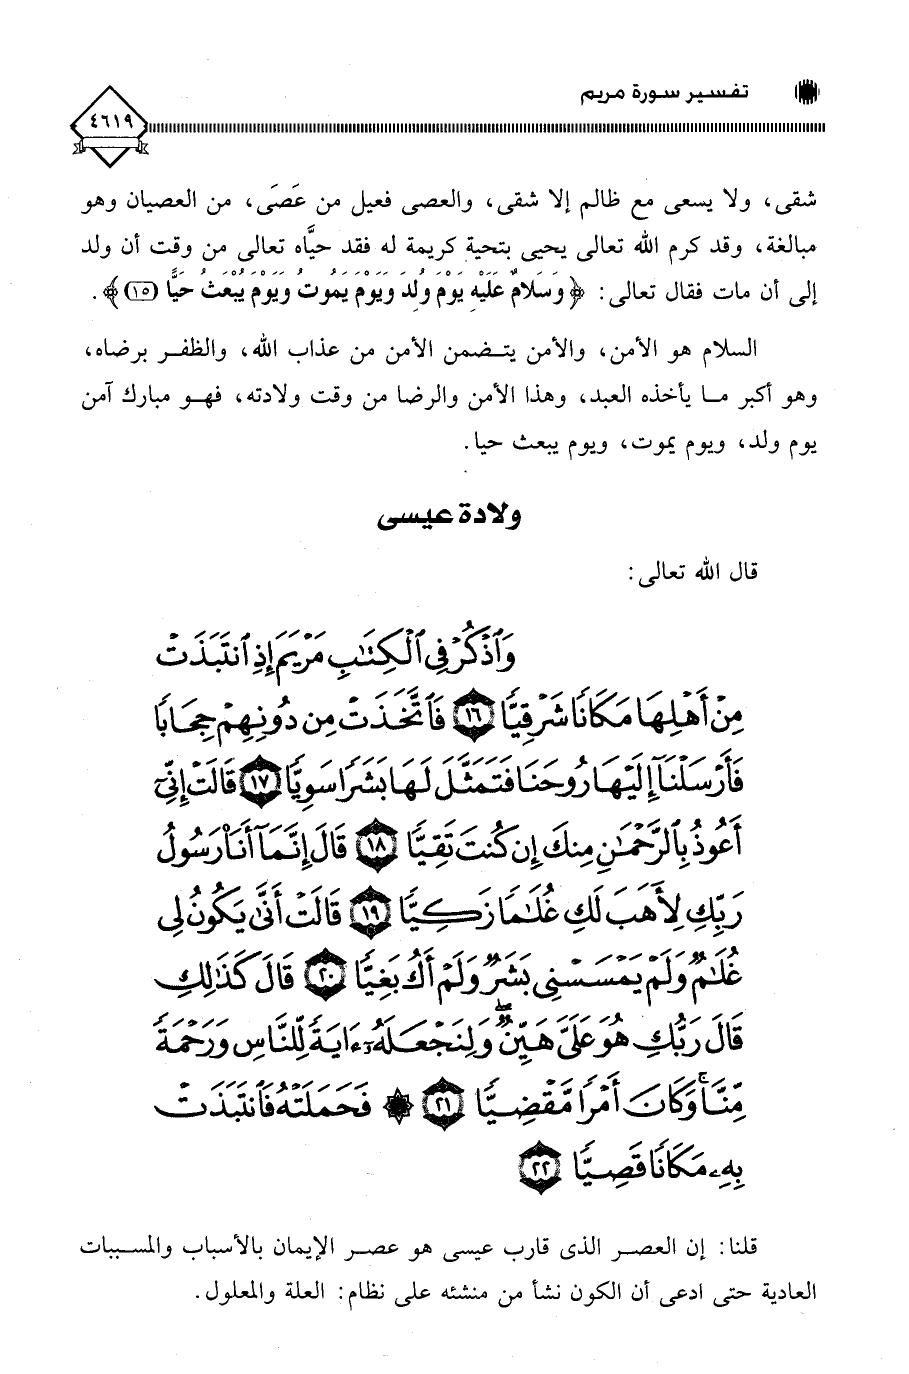 تفسير سورة مريم
٤٦١٩
شقى، ولا يسعى مع ظالم إلا شقى، والعصى فعيل من عَصَى، من العصيان وهو
مبالغة، وقد كرم الله تعالى يحيى بتحية كريمة له فقد حيَّاه تعالى من وقت أن ولد
إلى أن مات فقال تعالى: ﴿وَسَلامٌ عَلَيْهِ يَوْمَ وُلِدَ وَيَوْمَ يَمُوتُ وَيَوْمَ يُبْعَثُ حَيًّا (١٥)﴾.
السلام هو الأمن، والأمن يتضمن الأمن من عذاب الله، والظفر برضاه،
وهو أكبر ما يأخذه العبد، وهذا الأمن والرضا من وقت ولادته، فهو مبارك آمن
يوم ولد، ويوم يموت، ويوم يبعث حيا.
ولادة عيسى
قال الله تعالى:
وَٱذْكُرْ فِى ٱلْكِتَٰبِ مَرْيَمَ إِذِ ٱنتَبَذَتْ
مِنْ أَهْلِهَا مَكَانًا شَرْقِيًّا ١٦ فَٱتَّخَذَتْ مِن دُونِهِمْ حِجَابًا
فَأَرْسَلْنَآ إِلَيْهَا رُوحَنَا فَتَمَثَّلَ لَهَا بَشَرًا سَوِيًّا ١٧ قَالَتْ إِنِّىٓ
أَعُوذُ بِٱلرَّحْمَٰنِ مِنكَ إِن كُنتَ تَقِيًّا ١٨ قَالَ إِنَّمَآ أَنَا۠ رَسُولُ
رَبِّكِ لِأَهَبَ لَكِ غُلَٰمًا زَكِيًّا ١٩ قَالَتْ أَنَّىٰ يَكُونُ لِى
غُلَٰمٌ وَلَمْ يَمْسَسْنِى بَشَرٌ وَلَمْ أَكُ بَغِيًّا ٢٠ قَالَ كَذَٰلِكِ
قَالَ رَبُّكِ هُوَ عَلَىَّ هَيِّنٌ ۖ وَلِنَجْعَلَهُۥٓ ءَايَةً لِّلنَّاسِ وَرَحْمَةً
مِّنَّا ۚ وَكَانَ أَمْرًا مَّقْضِيًّا ٢١ ۞ فَحَمَلَتْهُ فَٱنتَبَذَتْ
بِهِۦ مَكَانًا قَصِيًّا ٢٢
قلنا: إن العصر الذى قارب عيسى هو عصر الإيمان بالأسباب والمسببات
العادية حتى ادعى أن الكون نشأ من منشئه على نظام: العلة والمعلول.